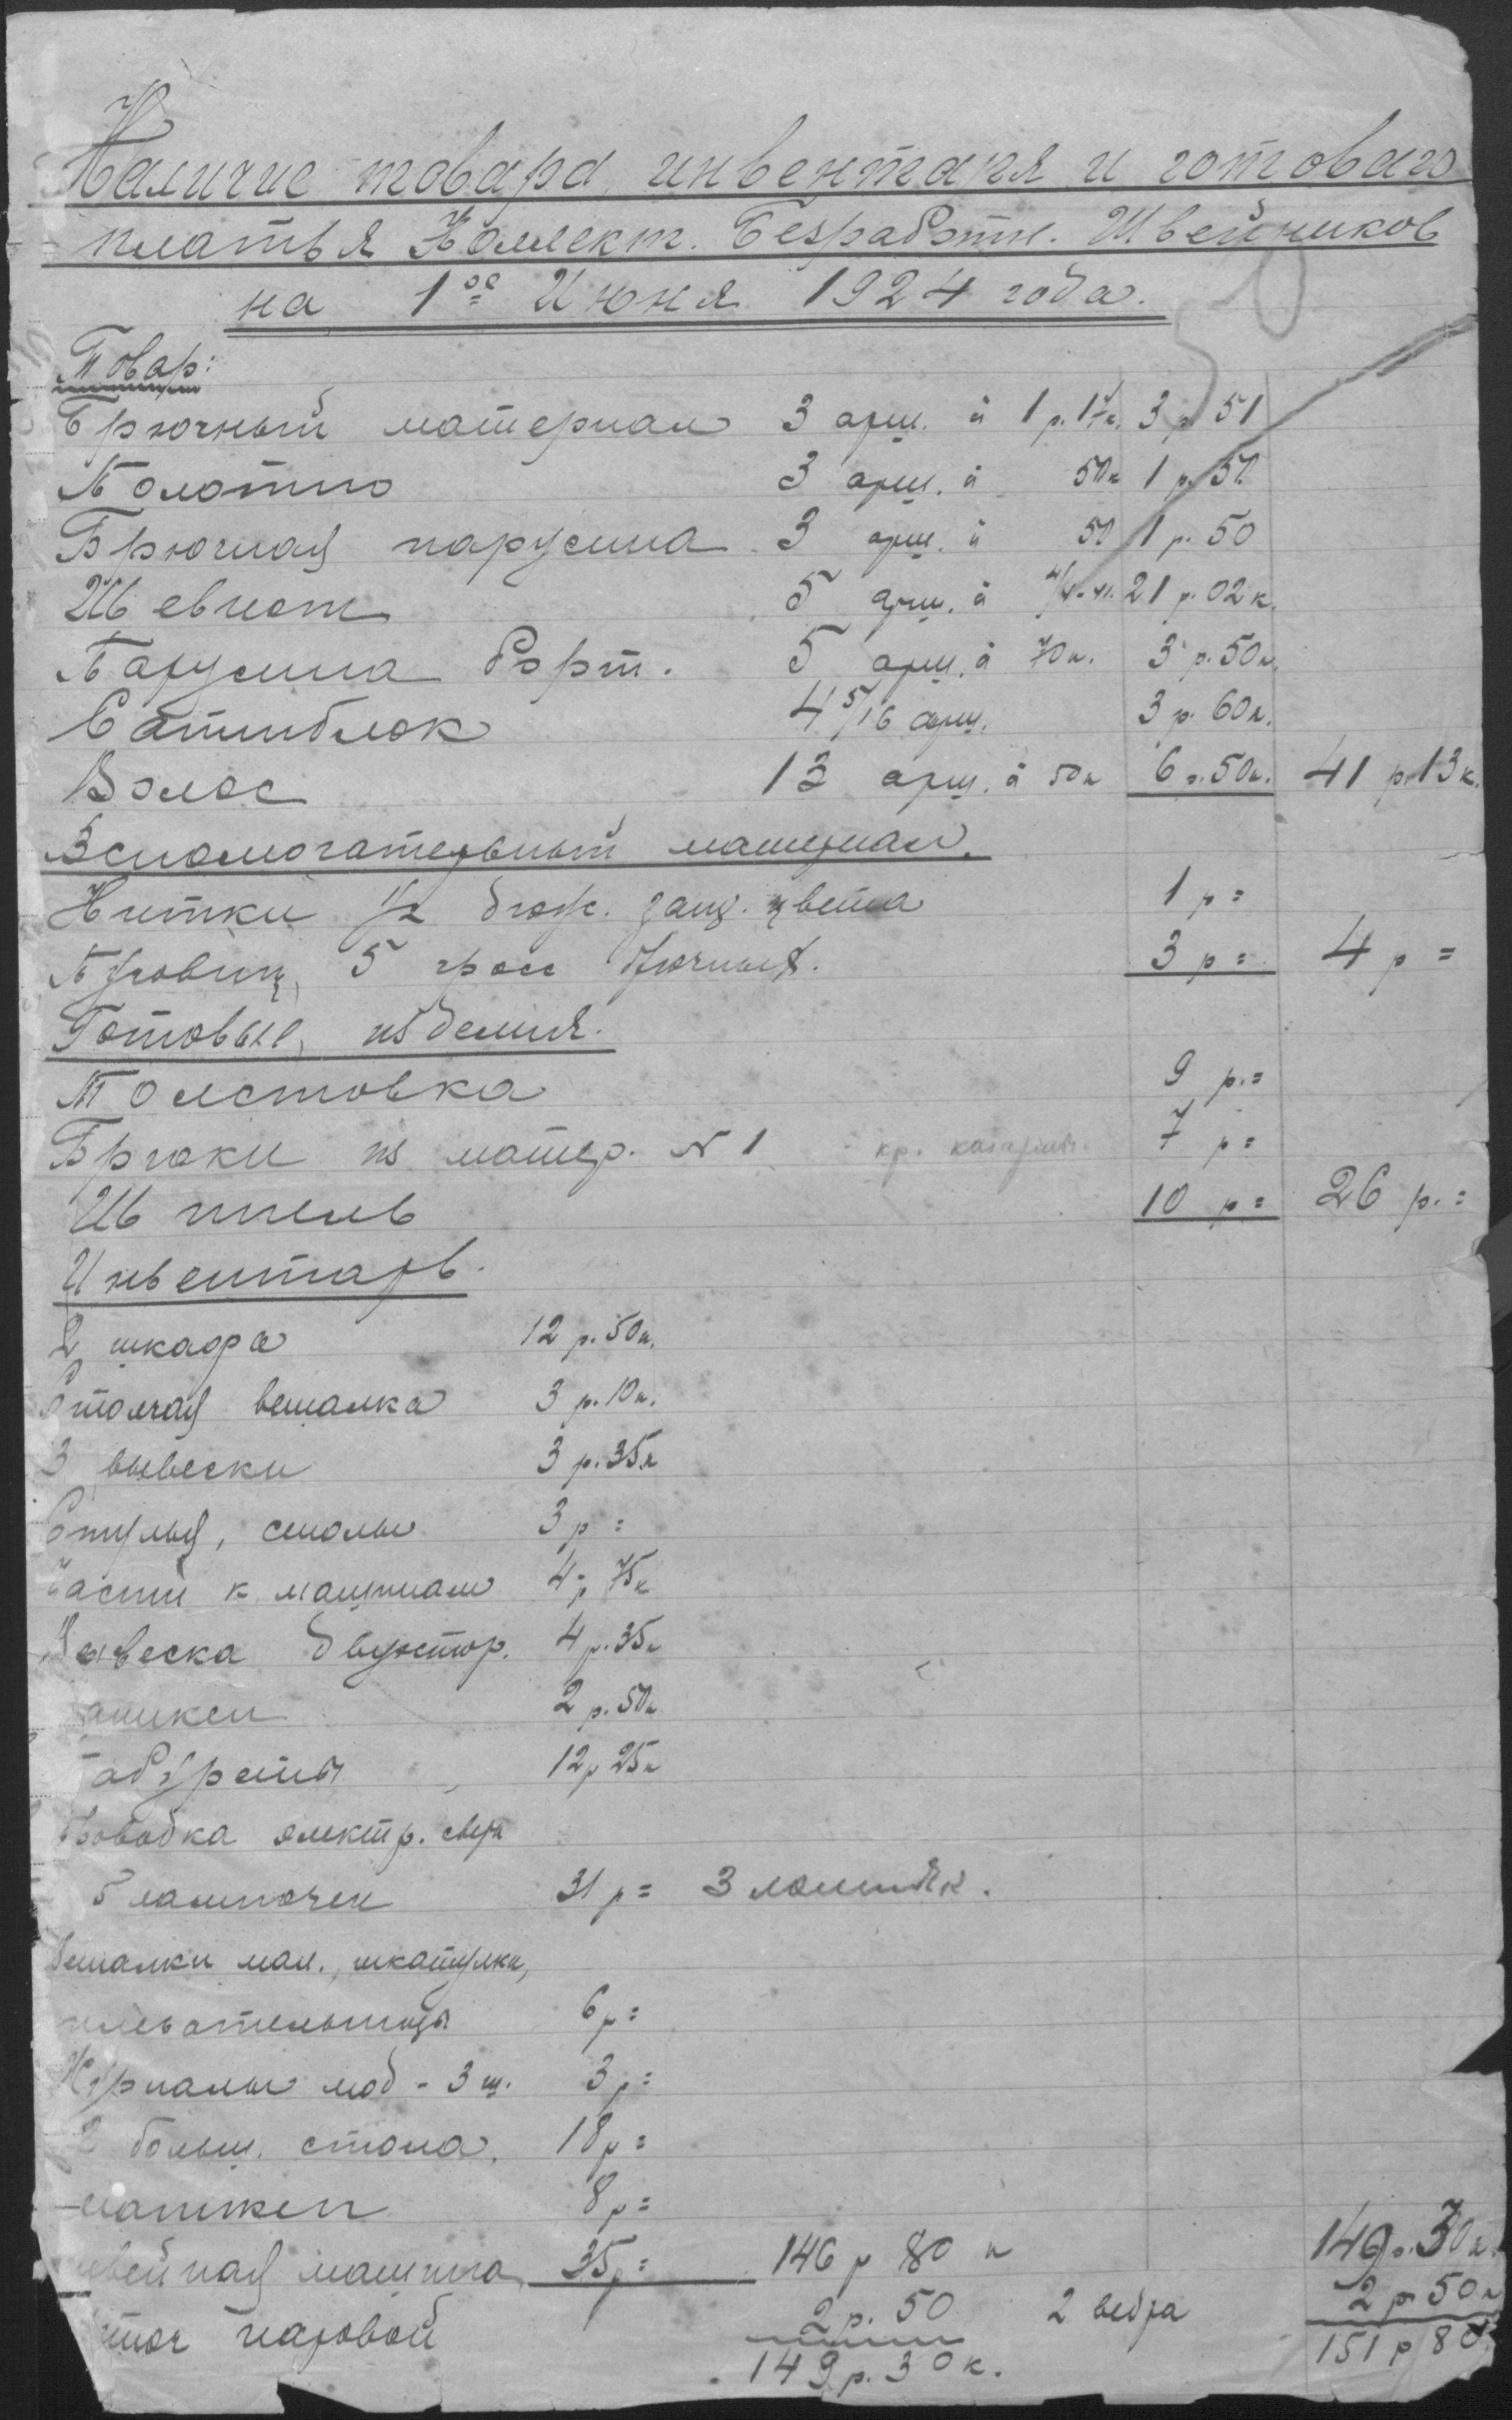 Наличие товара инвентаря и готоваго
платья Коллект. Безработн. Швейников
на 1ое Июня 1924 года.
Товар:
Брючный материал 3 арш. à 1 р. 17к. 3 р 51
Полотно 3 арш. à 50к 1 р. 50
Брючная парусина 3 арш. à 50 1 р. 50
Шевиот 5 арш. à 21 р. 02 к.
Парусина борт. 5 арш. à 70 к. 3 р. 50 к.
Сатинблок 4 5/16 арш. 3 р. 60 к.
Волос 13 арш. à 50 к 6 р. 50 к. 41 р. 13 к.
Вспомогательный материал.
Нитки 1/2 дюж. защ. цвета 1 р =
Пуговиц 5 гросс брючных. 3 р = 4 р =
Готовые изделия.
Толстовка 9 р. =
Брюки из матер. N 1 7 р =
Шинель 10 р = 26 р. =
Инвентарь.
2 шкафа 12 р. 50 к.
Стоячая вешалка 3 р. 10 к.
3 вывески 3 р. 35 к
Стулья, столы 3 р =
Части к машинам 4 р 75 к
Вывеска двухстор. 4 р. 35 к
аникен 2 р. 50 к
Табуреты 12 р 25 к
Проводка электр. свет
5 лампочек 31 р = 3
Вешалки мал., шкатулки,
плевательницы 6 р =
Журналы мод - 3 ш. 3 р =
2 больш. стола. 18 р =
маникен 8 р =
швейная машина 35 р = 146 р 80 к 149 р. 30 к.
утюг паровой 2 р. 50 2 ведра 2 р 50 к
149 р. 30 к. 151 р 80